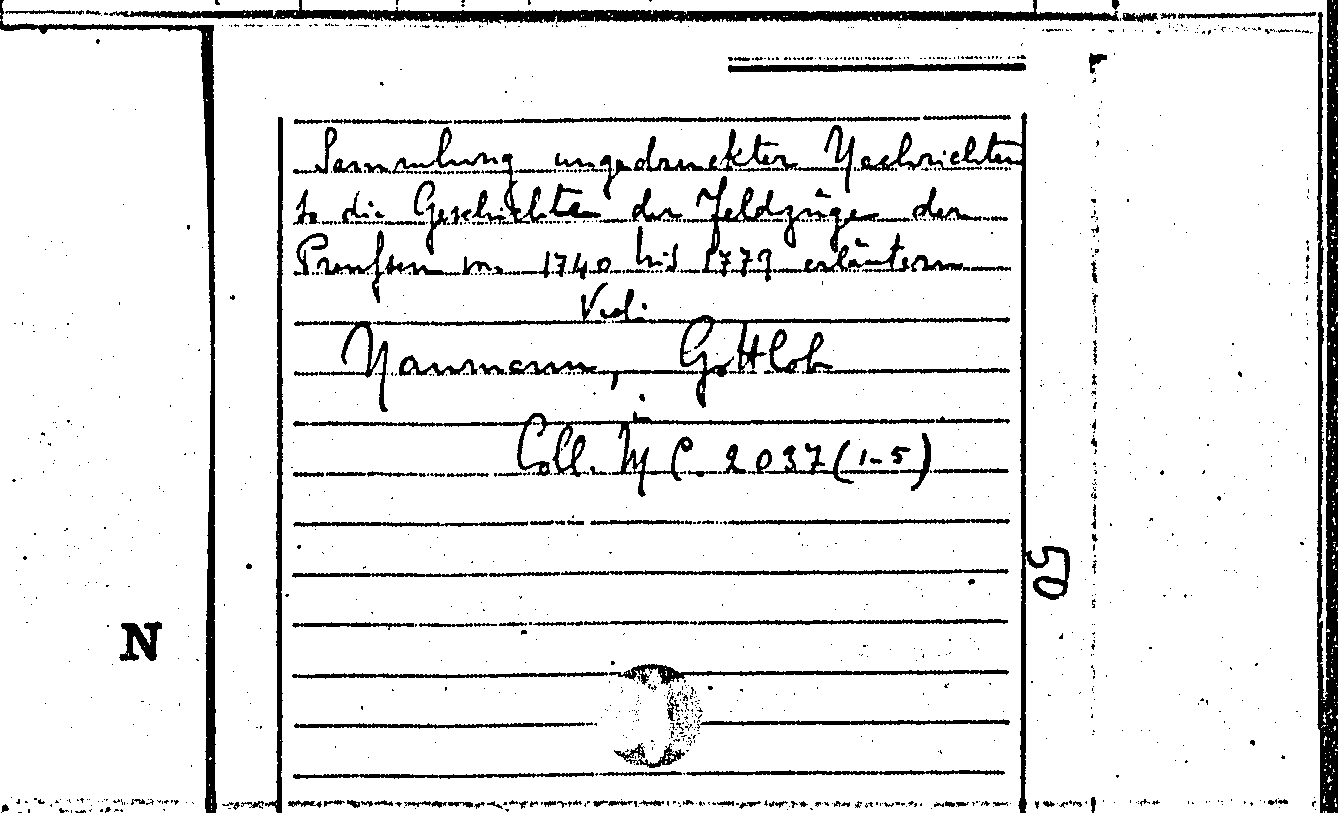 Sammlung ungedruckter Nachrichten
so die Geschichte der Feldzüge der
Preußen von 1740 bis 1779 erläutern
Vedi
Naumann, Gottlob
in
Coll. M C. 2037 (1-5)
50
N